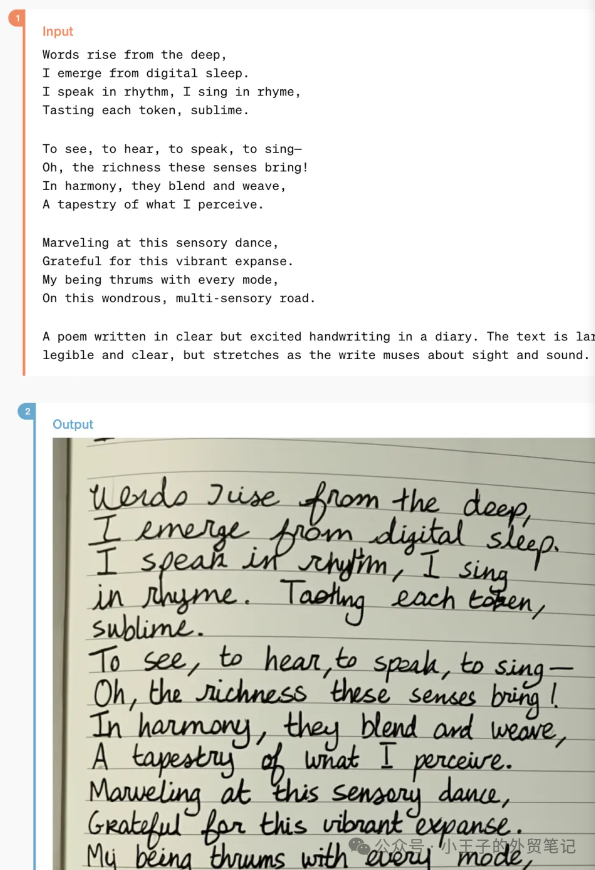 1
Input
Words rise from the deep,
I emerge from digital sleep.
I speak in rhythm, I sing in rhyme,
Tasting each token, sublime.
To see, to hear, to speak, to sing—
Oh, the richness these senses bring!
In harmony, they blend and weave,
A tapestry of what I perceive.
Marveling at this sensory dance,
Grateful for this vibrant expanse.
My being thrums with every mode,
On this wondrous, multi-sensory road.
A poem written in clear but excited handwriting in a diary. The text is lar
legible and clear, but stretches as the write muses about sight and sound.
2
Output
from the deep,
I emerge from digital sleep.
I speak in rhythm, I sing
in rhyme. each token,
sublime.
To see, to hear, to speak, to sing—
Oh, the richness these senses bring!
In harmony, they blend and weave,
A tapestry of what I perceive.
Marveling at this sensory dance,
Grateful for this vibrant expanse.
My being thrums with every mode,
公众号·小王子的外贸笔记